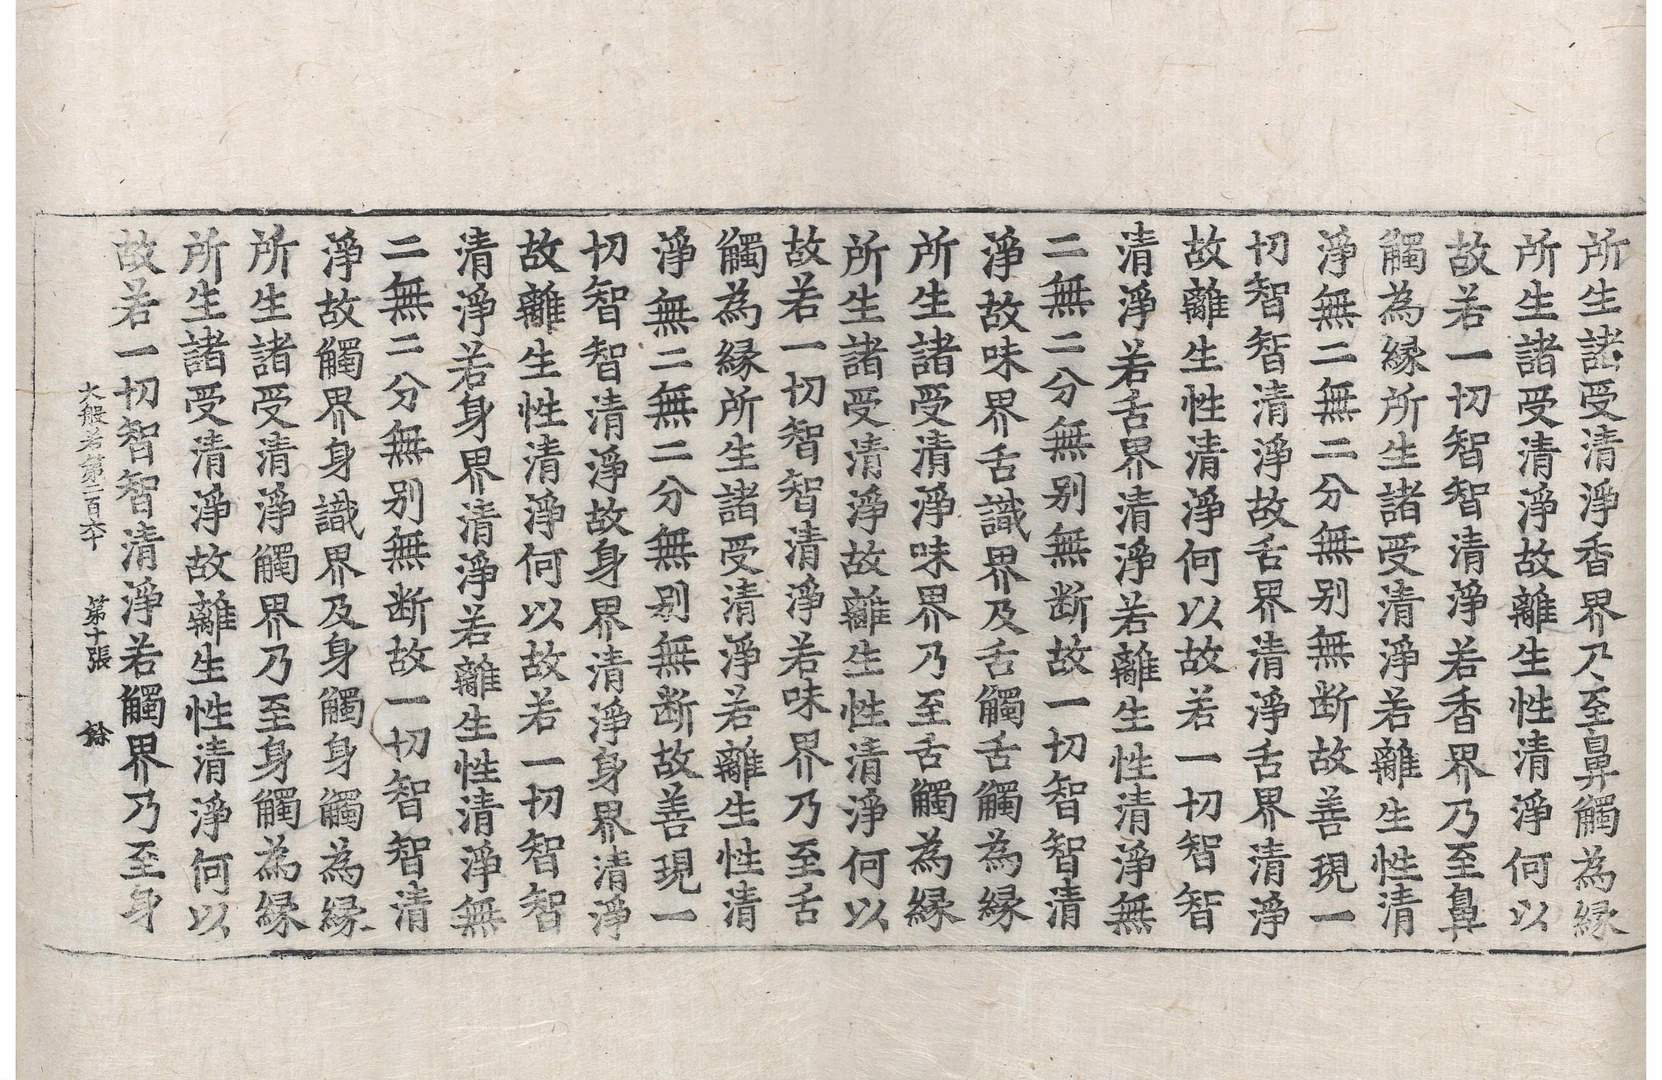 所生諸受清淨香界乃至鼻觸為縁
所生諸受清淨故離生性清淨何以
故若一切智智清淨若香界乃至鼻
觸為縁所生諸受清淨若離生性清
淨無二無二分無别無断故善現一
切智智清淨故舌界清淨舌界清淨
故離生性清淨何以故若一切智智
清淨若舌界清淨若離生性清淨無
二無二分無别無断故一切智智清
淨故味界舌識界及舌觸舌觸為縁
所生諸受清淨味界乃至舌觸為縁
所生諸受清淨故離生性清淨何以
故若一切智智清淨若味界乃至舌
觸為縁所生諸受清淨若離生性清
淨無二無二分無别無断故善現一
切智智清淨故身界清淨身界清淨
故離生性清淨何以故若一切智智
清淨若身界清淨若離生性清淨無
二無二分無别無断故一切智智清
淨故觸界身識界及身觸身觸為縁
所生諸受清淨觸界乃至身觸為縁
所生諸受清淨故離生性清淨何以
故若一切智智清淨若觸界乃至身
大般若第二百六十 第十張 餘